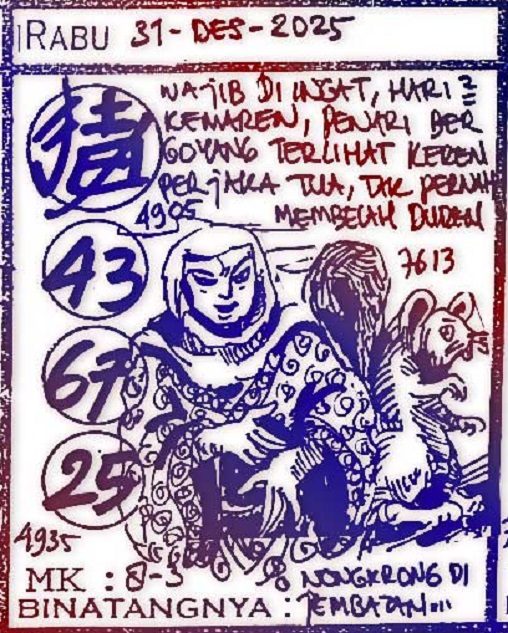 RABU 31-DES-2025
WAJIB DI INGAT, HARI2
KEMAREN, PENARI BER
GOYANG TERLIHAT KEREN
PERJAKA TUA, TAK PERNAH
MEMBELAH DUREN
4905
43
7613
67
25
4935
MK : 8-3
% NONGKRONG DI
BINATANGNYA : JEMBATAN...